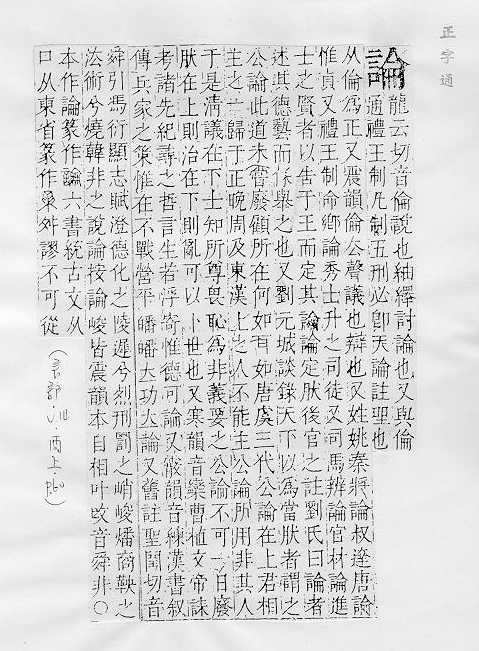 正字通
論
龍云切音倫說也紬繹討論也又與倫
通禮王制凡制五刑必卽天論註聖也
从倫爲正又震韻倫公聲議也辯也又姓姚秦將論叔逵唐論
惟貞又禮王制命鄉論秀士升之司徒又司馬辨論官材論進
士之賢者以告于王而定其論論定肰後官之註劉氏曰論者
述其德藝而保舉之也又劉元城談錄天下以爲當肰者謂之
公論此道未嘗廢顧所在何如耳如唐虞三代公論在上君相
主之一歸于正晚周及東漢上之人不能主公論所用非其人
于是淸議在下士知所尊畏恥爲非義要之公論不可一日廢
肰在上則治在下則亂可以卜世也又寒韻音欒曹植文帝誄
考諸先紀尋之哲言生若浮寄惟德可論又霰韻音練漢書叙
傳兵家之策惟在不戰營平皤皤立功立論又舊註聖閏切音
舜引馮衍顯志賦澄德化之陵遲兮烈刑罰之峭峻燔商鞅之
法術兮燒韓非之說論按論峻皆震韻本自相叶改音舜非○
本作論篆作論六書統古文从
口从東省篆作𠷎舛謬不可從